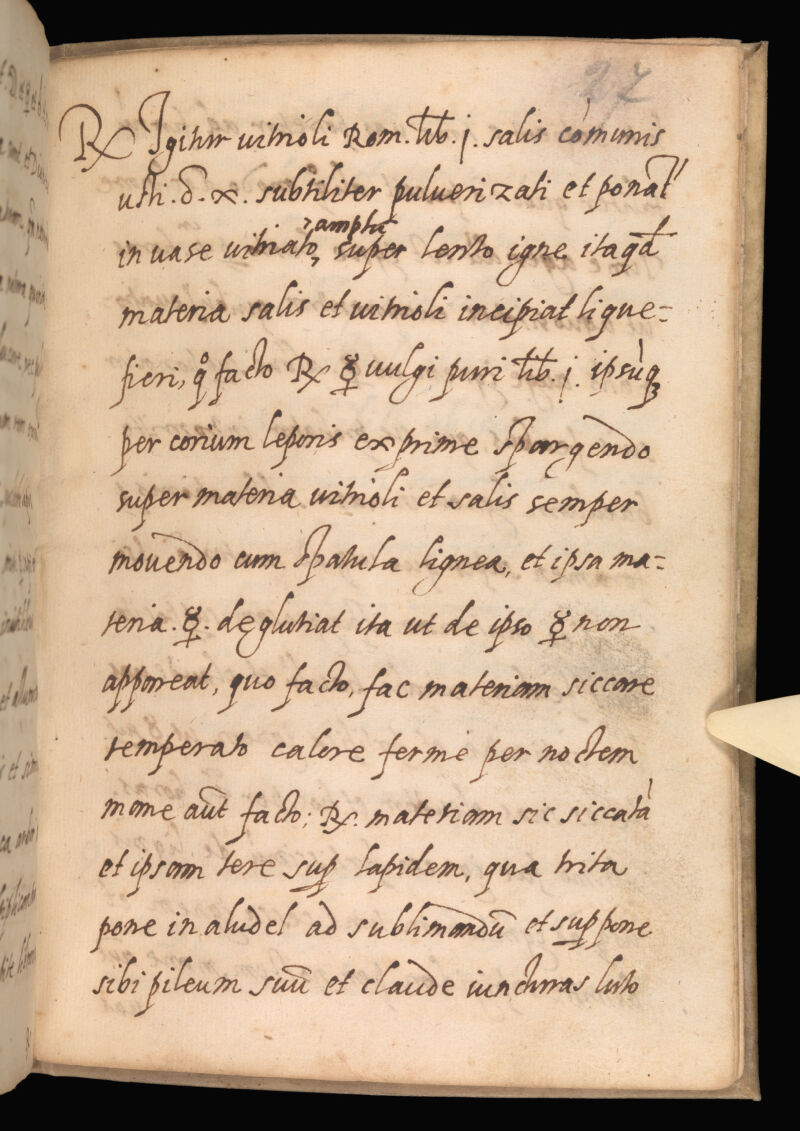 27
℞ Igitur uitrioli Rom. lib. j. salis cōmunis
usti. d. x. subtiliter puluerizati et ponat
in uase uitriato, amplū super lento igne itaqd
materia salis et uitrioli incipiat lique=
fieri, qo facto ℞ ☿ uulgi puri lib. j. ipsūq
per corium leporis exprime spargendo
super materia uitrioli et salis semper
mouendo cum spatula lignea, et ipsa ma=
teria . ☿ . deglutiat ita ut de ipso ☿ non
appareat, quo facto, fac materiam siccare
temperato calore ferme per noctem
mane aūt facto; ℞. materiam sic siccatā
et ipsam tere sup lapidem, qua trita
pone in aludel ad sublimandū et suppone
sibi pileum suū et claude iuncturas luto